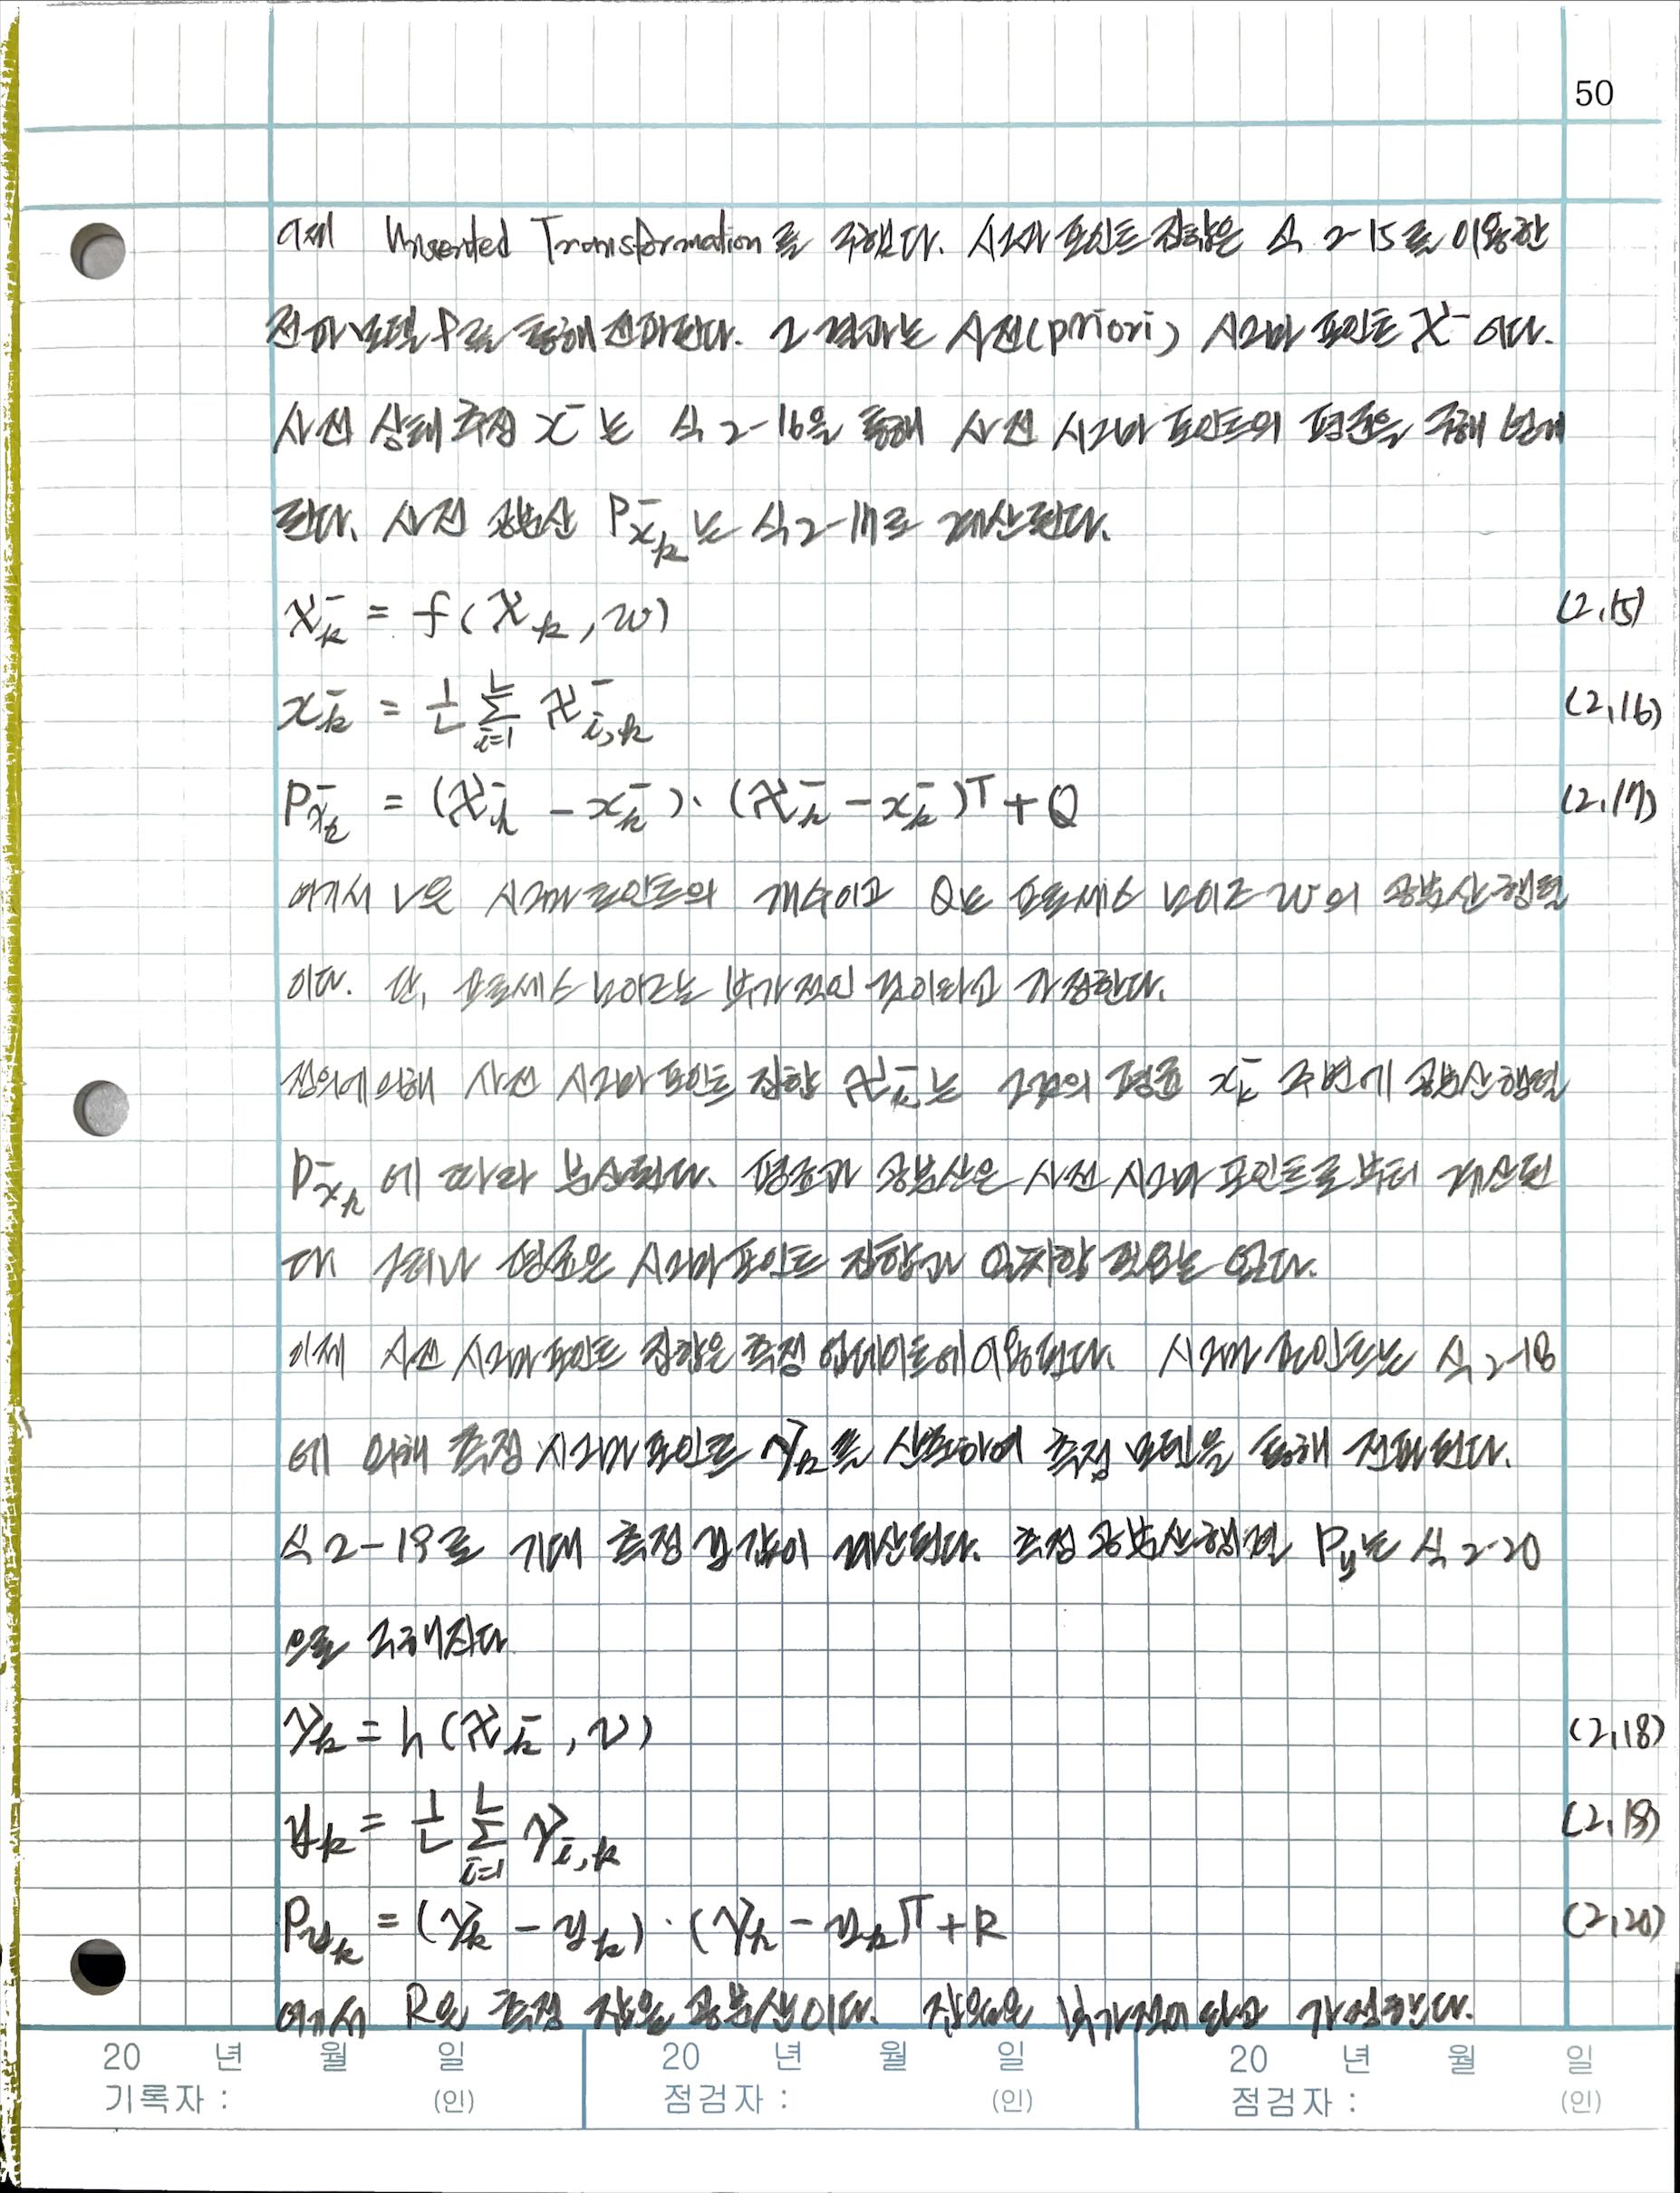 50
이제 Unscented Transformation을 구했다. 시그마 포인트 집합은 식 2-15를 이용한
전파 모델 f를 통해 전파된다. 그 결과는 사전(priori) 시그마 포인트 χ⁻이다.
사전 상태 추정 x⁻는 식 2-16을 통해 사전 시그마 포인트의 평균을 구해
된다. 사전 공분산 P⁻xₖ는 식 2-17로 계산된다.
χₖ⁻ = f(χₖ, w) (2.15)
xₖ⁻ = 1/L Σ(i=1→L) χ⁻i,k (2.16)
P⁻xₖ = (χₖ⁻ - xₖ⁻)·(χₖ⁻ - xₖ⁻)ᵀ + Q (2.17)
여기서 L은 시그마 포인트의 개수이고 Q는 프로세스 노이즈 w의 공분산 행렬
이다. 단, 프로세스 노이즈는 부가적인 것이라고 가정한다.
정의에 의해 사전 시그마 포인트 집합 χₖ⁻는 그것의 평균 xₖ⁻ 주변에 공분산 행렬
P⁻xₖ에 따라 분산된다. 평균과 공분산은 사전 시그마 포인트로부터 계산된
다. 그러나 평균은 시그마 포인트 집합과 일치할 필요는 없다.
이제 사전 시그마 포인트 집합은 측정 업데이트에 이용된다. 시그마 포인트는 식 2-18
에 의해 측정 시그마 포인트 𝒴ₖ를 산출하여 측정 모델을 통해 전파된다.
식 2-19로 기대 측정 값이 계산된다. 측정 공분산 행렬 Py는 식 2-20
으로 구해진다
𝒴ₖ = h(χₖ⁻, v) (2.18)
yₖ = 1/L Σ(i=1→L) 𝒴i,k (2.19)
Pyₖ = (𝒴ₖ - yₖ)·(𝒴ₖ - yₖ)ᵀ + R (2.20)
여기서 R은 측정 잡음 공분산이다. 잡음은 부가적이라고 가정한다.
20 년 월 일 20 년 월 일 20 년 월 일
기록자 : (인) 점검자 : (인) 점검자 : (인)